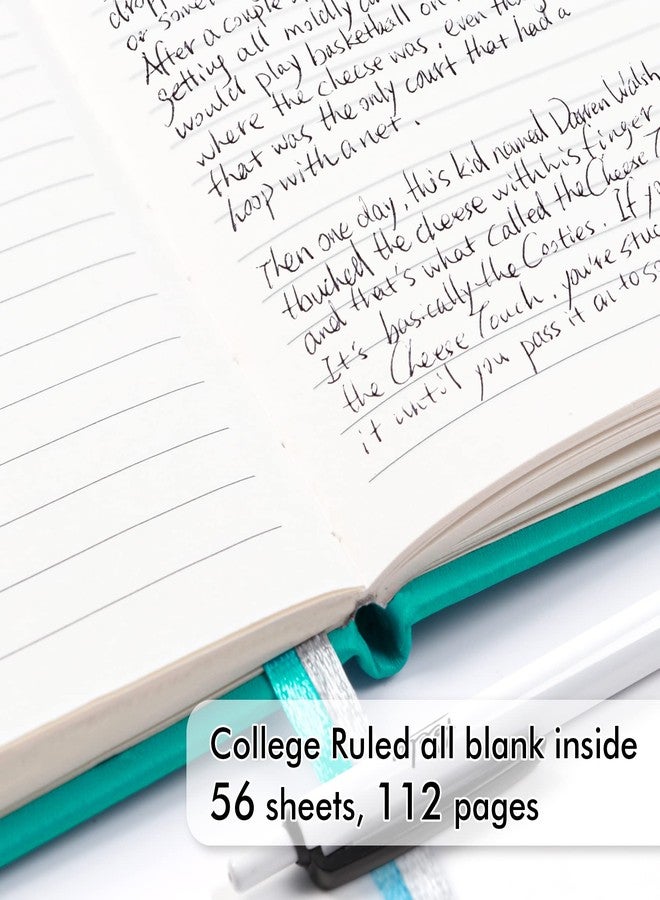 or some
After a couple
getting all moldy a
would play basketball on
where the cheese was, even th
that was the only court that had a
hoop with a net.
Then one day, this kid named Darren Walsh
touched the cheese with his finger
and that's what called the Cheese T
It's basically the Cooties. If yo
the Cheese Touch, you're stuc
it until you pass it on to so
College Ruled all blank inside
56 sheets, 112 pages